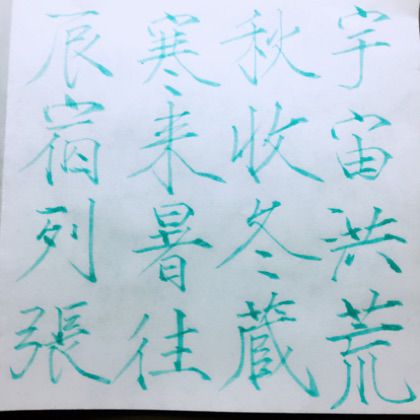 宇宙洪荒
秋收冬蔵
寒来暑往
辰宿列張